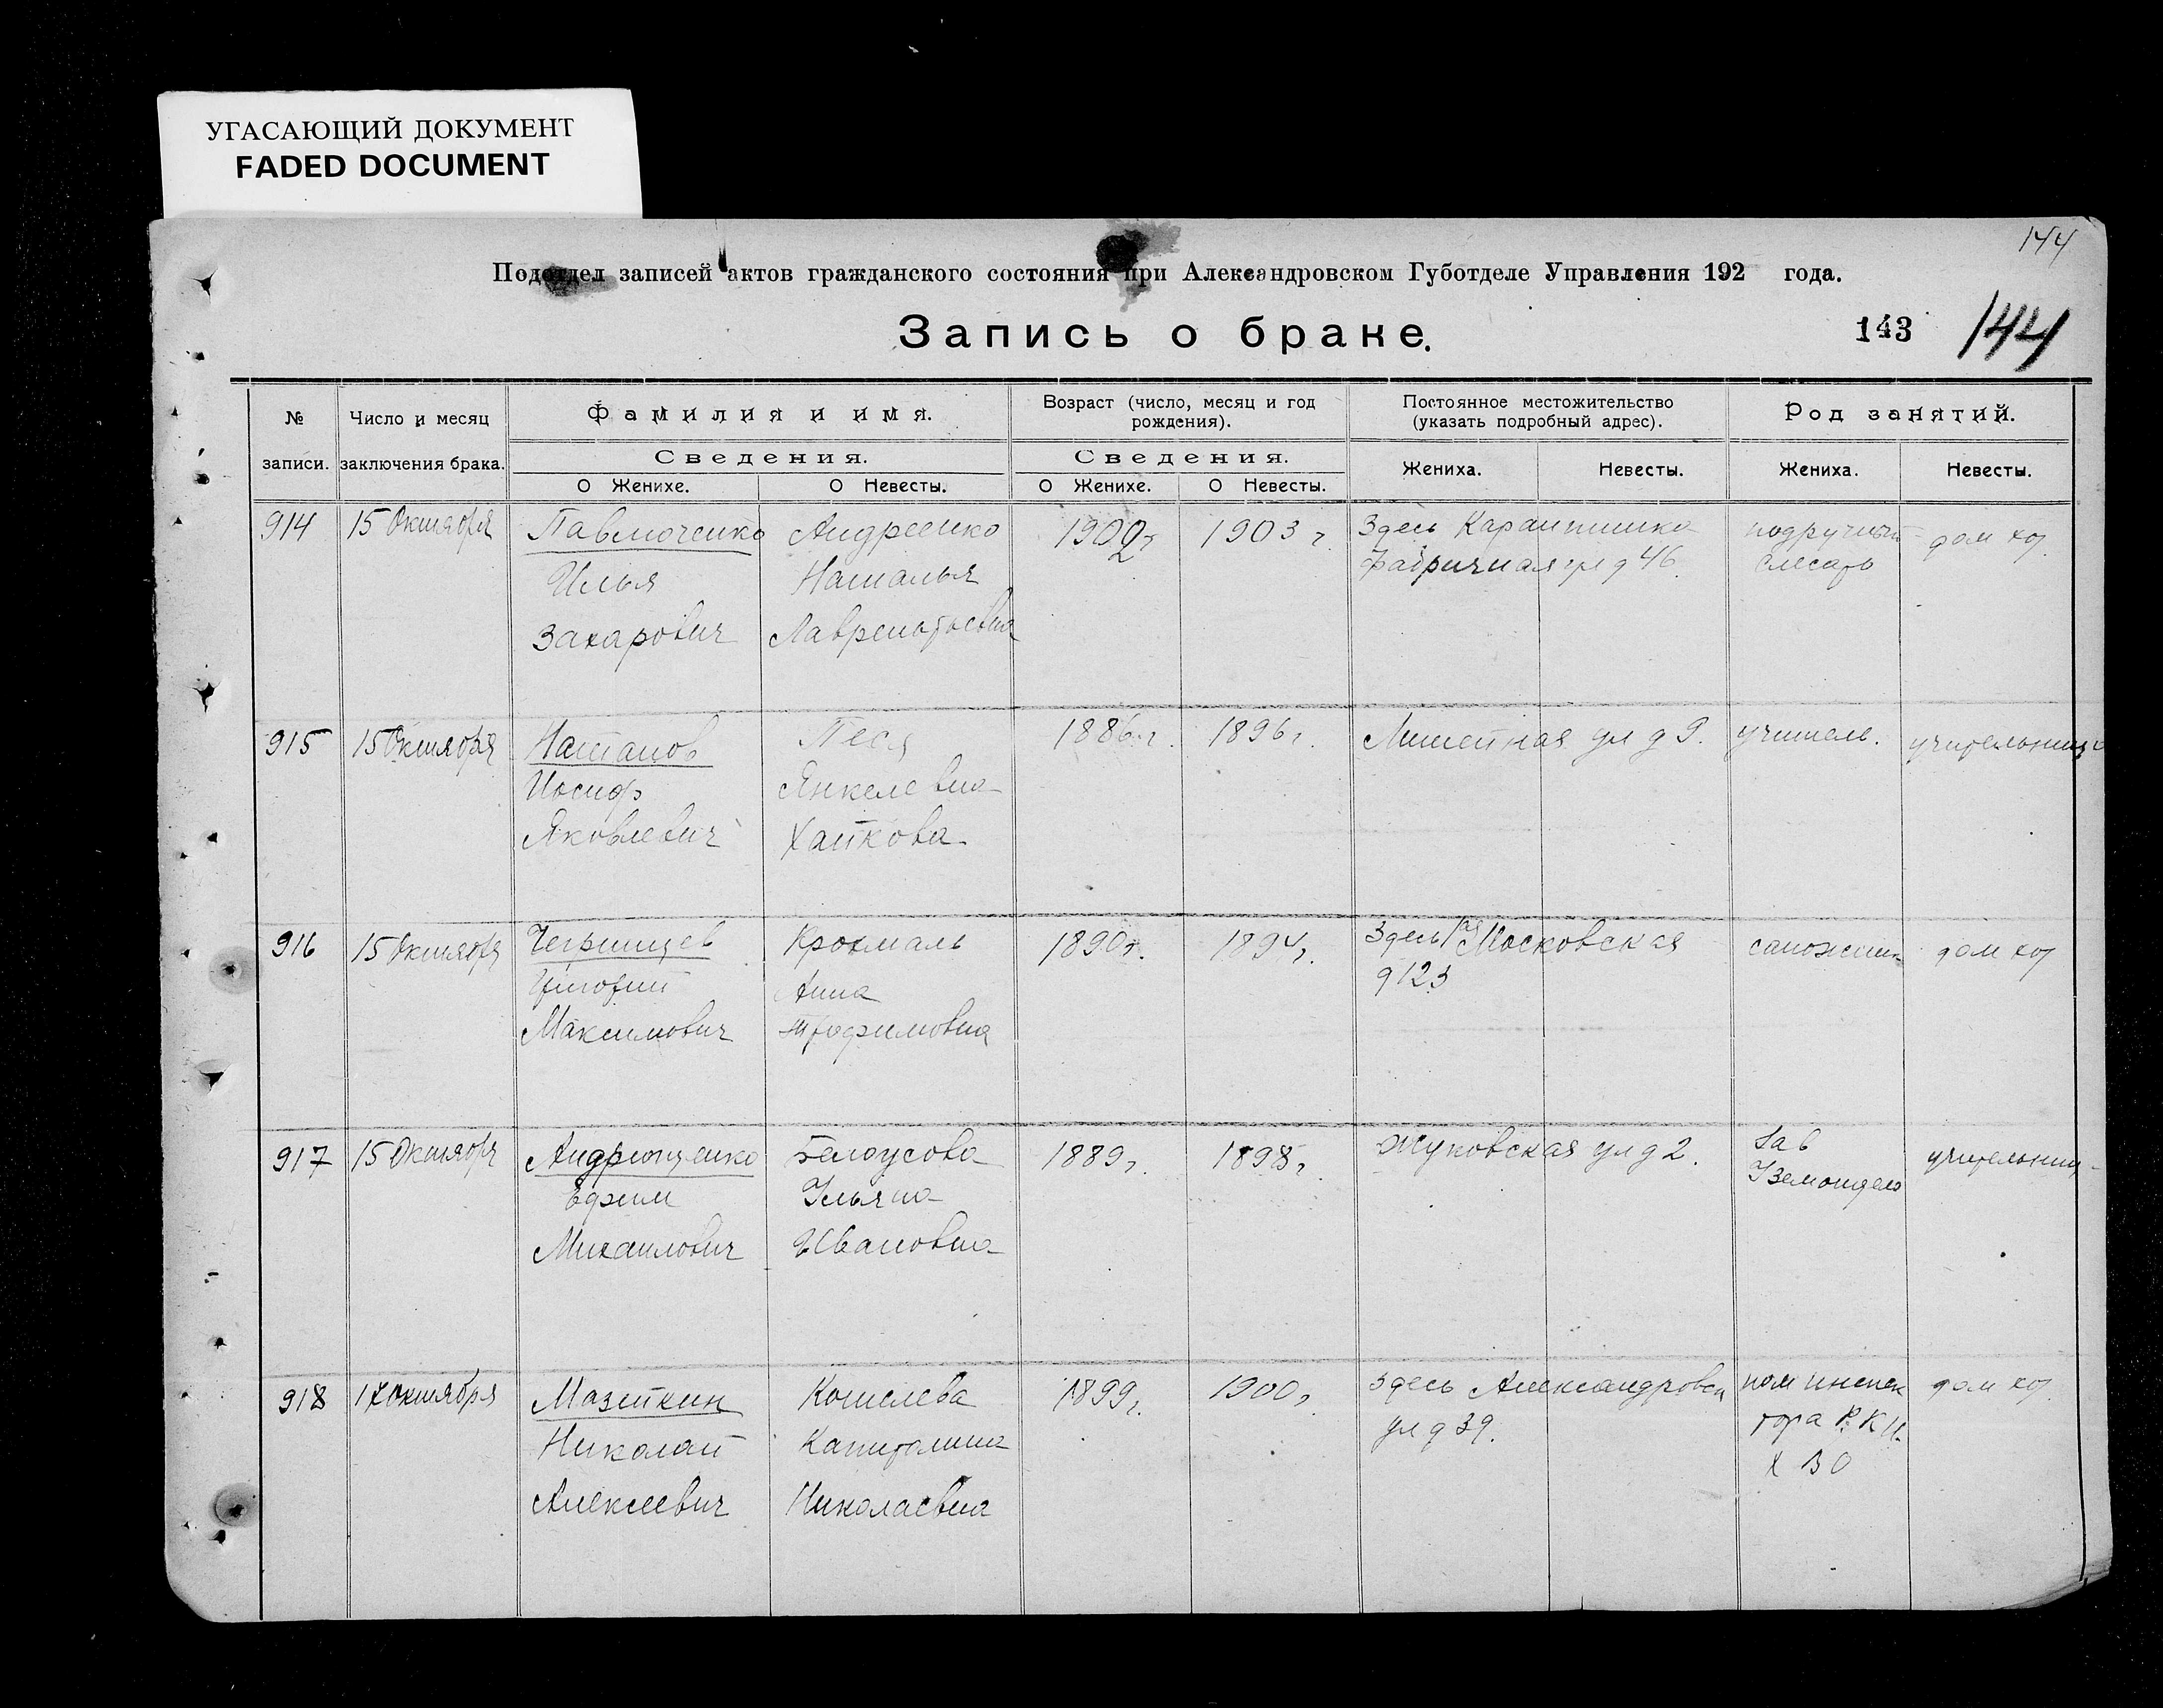 УГАСАЮЩИЙ ДОКУМЕНТ
FADED DOCUMENT
144
Подотдел записей актов гражданского состояния при Александровском Губотделе Управления 192 года.
Запись о браке.
143 144
№ записи.
Число и месяц заключения брака.
Фамилия и имя.
Сведения.
О Женихе.
О Невесты.
Возраст (число, месяц и год рождения).
Сведения.
О Женихе.
О Невесты.
Постоянное местожительство (указать подробный адрес).
Жениха.
Невесты.
Род занятий.
Жениха.
Невесты.
914 15 Октября Павлюченко Андреенко 1902г 1903 г. Здесь Карантинка подручный дом хоз
Илья Наталья Фабричная ул д 46. слесарь
Захарович Лаврентьевна
915 15 Октября Натанов Песя 1886 г. 1896 г. ул д 9. учитель. учительница
Иосиф Янкелевна
Яковлевич Хайкова
916 15 Октября Крохмаль 1890 г. 1894 г. Здесь Московская сапожник дом хоз
Анна д 123
Максимович Трофимовна
917 15 Октября Андрющенко Белоусова 1889 г. 1898 г. Жуковская ул д 2. Зав учительниц
Ефим Ульяна
Михайлович Ивановна
918 17 Октября Мазйкин Кошелева 1899 г. 1900 г. Здесь Александровск пом инспек дом хоз
Николай Капитолина ул д 39. тора Р.К.И.
Алексеевич Николаевна Х В О